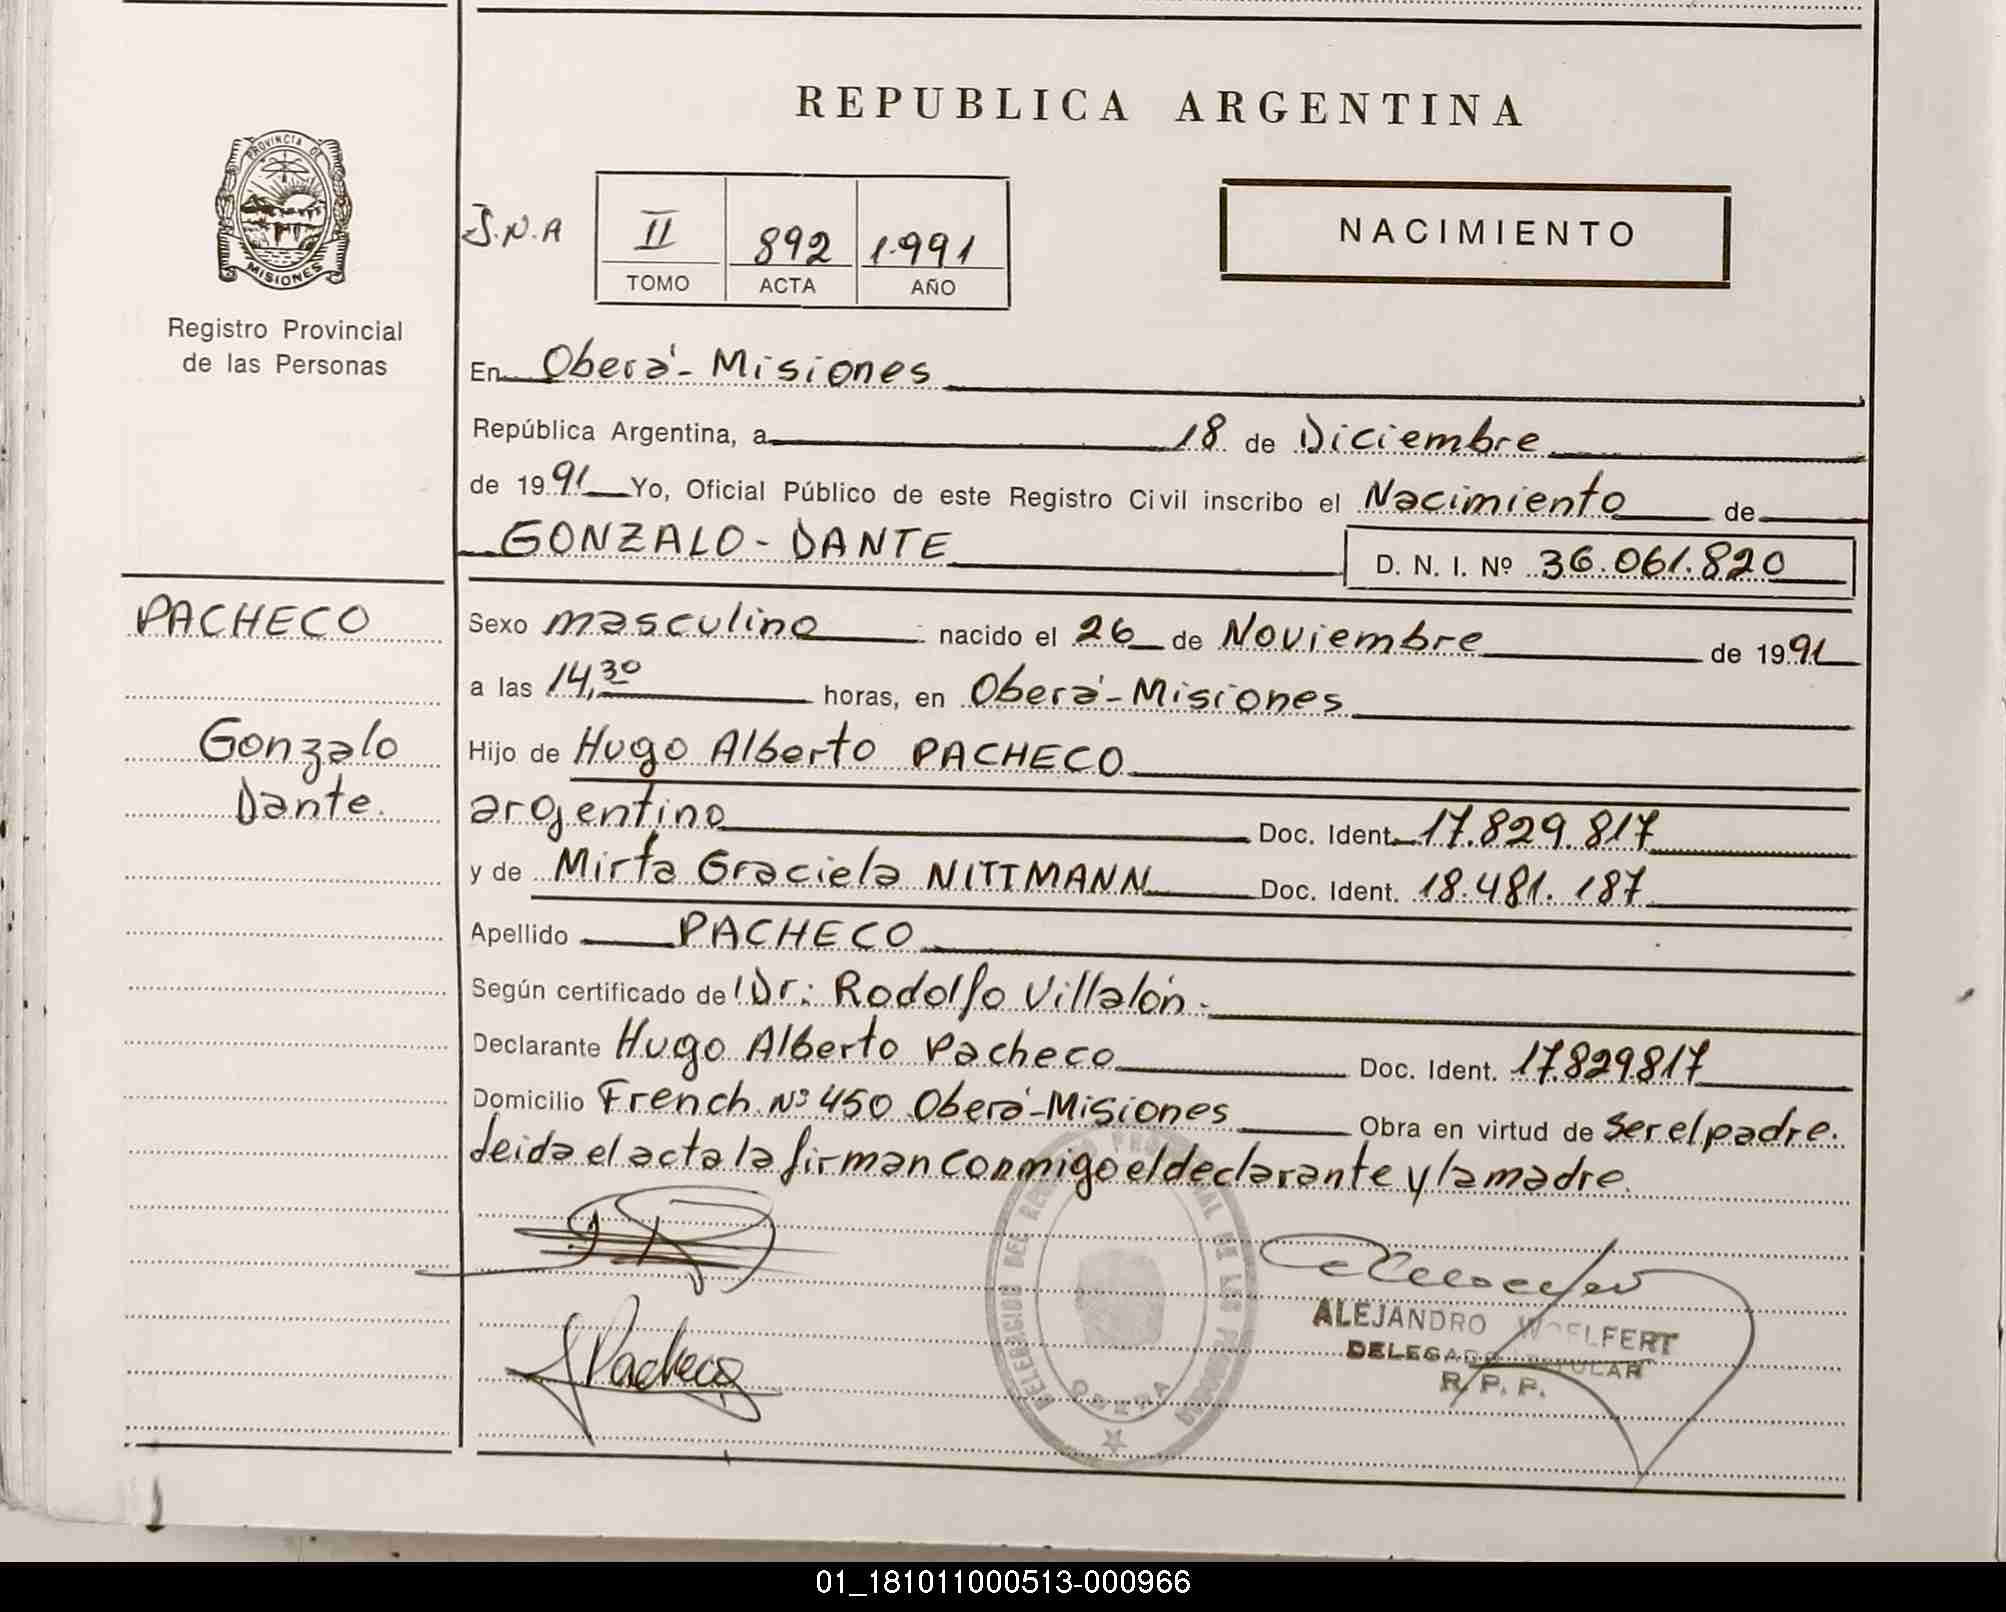 REPUBLICA ARGENTINA
PROVINCIA DE
MISIONES
Registro Provincial
de las Personas
J.N.A
II 892 1.991
TOMO ACTA AÑO
NACIMIENTO
En Oberá - Misiones
República Argentina, a 18 de Diciembre
de 1991 Yo, Oficial Público de este Registro Civil inscribo el Nacimiento de
GONZALO - DANTE D. N. I. Nº 36.061.820
PACHECO
Gonzalo
Dante.
Sexo masculino nacido el 26 de Noviembre de 1991
a las 14,30 horas, en Oberá - Misiones
Hijo de Hugo Alberto PACHECO
argentino Doc. Ident. 17.829.817
y de Mirta Graciela NITTMANN Doc. Ident. 18.481.187
Apellido PACHECO
Según certificado de Dr: Rodolfo Villalón.
Declarante Hugo Alberto Pacheco Doc. Ident. 17.829817
Domicilio French Nº 450 Oberá - Misiones Obra en virtud de ser el padre.
Leida el acta la firman conmigo el declarante y la madre.
DELEGACION DEL REGISTRO PROVINCIAL DE LAS PERSONAS
OBERA
Pacheco
ALEJANDRO WOELFERT
DELEGADO TITULAR
R. P. P.
01_181011000513-000966